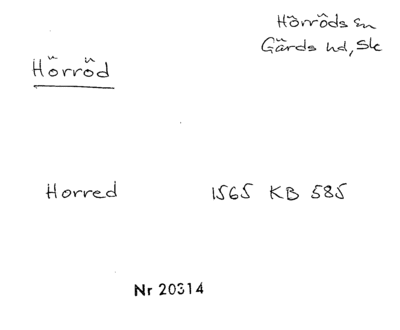 Hörröds sn
Gärds hd, Sk
Hörröd
Horred 1565 KB 585
Nr 20314